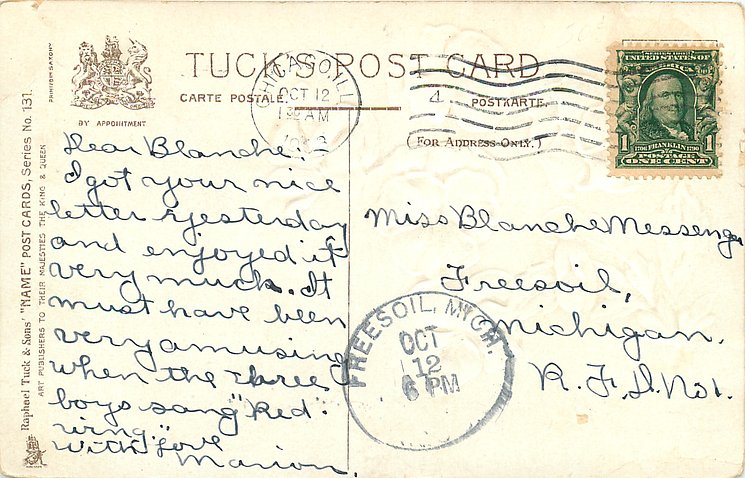 TUCK'S POST CARD
CARTE POSTALE
POSTKARTE
4
(FOR ADDRESS ONLY.)
BY APPOINTMENT
PRINTED IN SAXONY
Raphael Tuck & Sons' "NAME" POST CARDS, Series No. 131.
ART PUBLISHERS TO THEIR MAJESTIES THE KING & QUEEN
CHICAGO, ILL.
OCT 12
AM
SERIES 1902
UNITED STATES OF
AMERICA
1 1706 FRANKLIN 1790 1
POSTAGE
ONE CENT
Dear Blanche:-
I got your nice
letter yesterday
and enjoyed it
very much. It
must have been
very amusing
when the three
boys sang "Red-
wing."
With Love
Marion.
Miss Blanche Messenger
Freesoil,
Michigan.
R. F. D. No 1.
FREESOIL, MICH.
OCT
12
6 PM